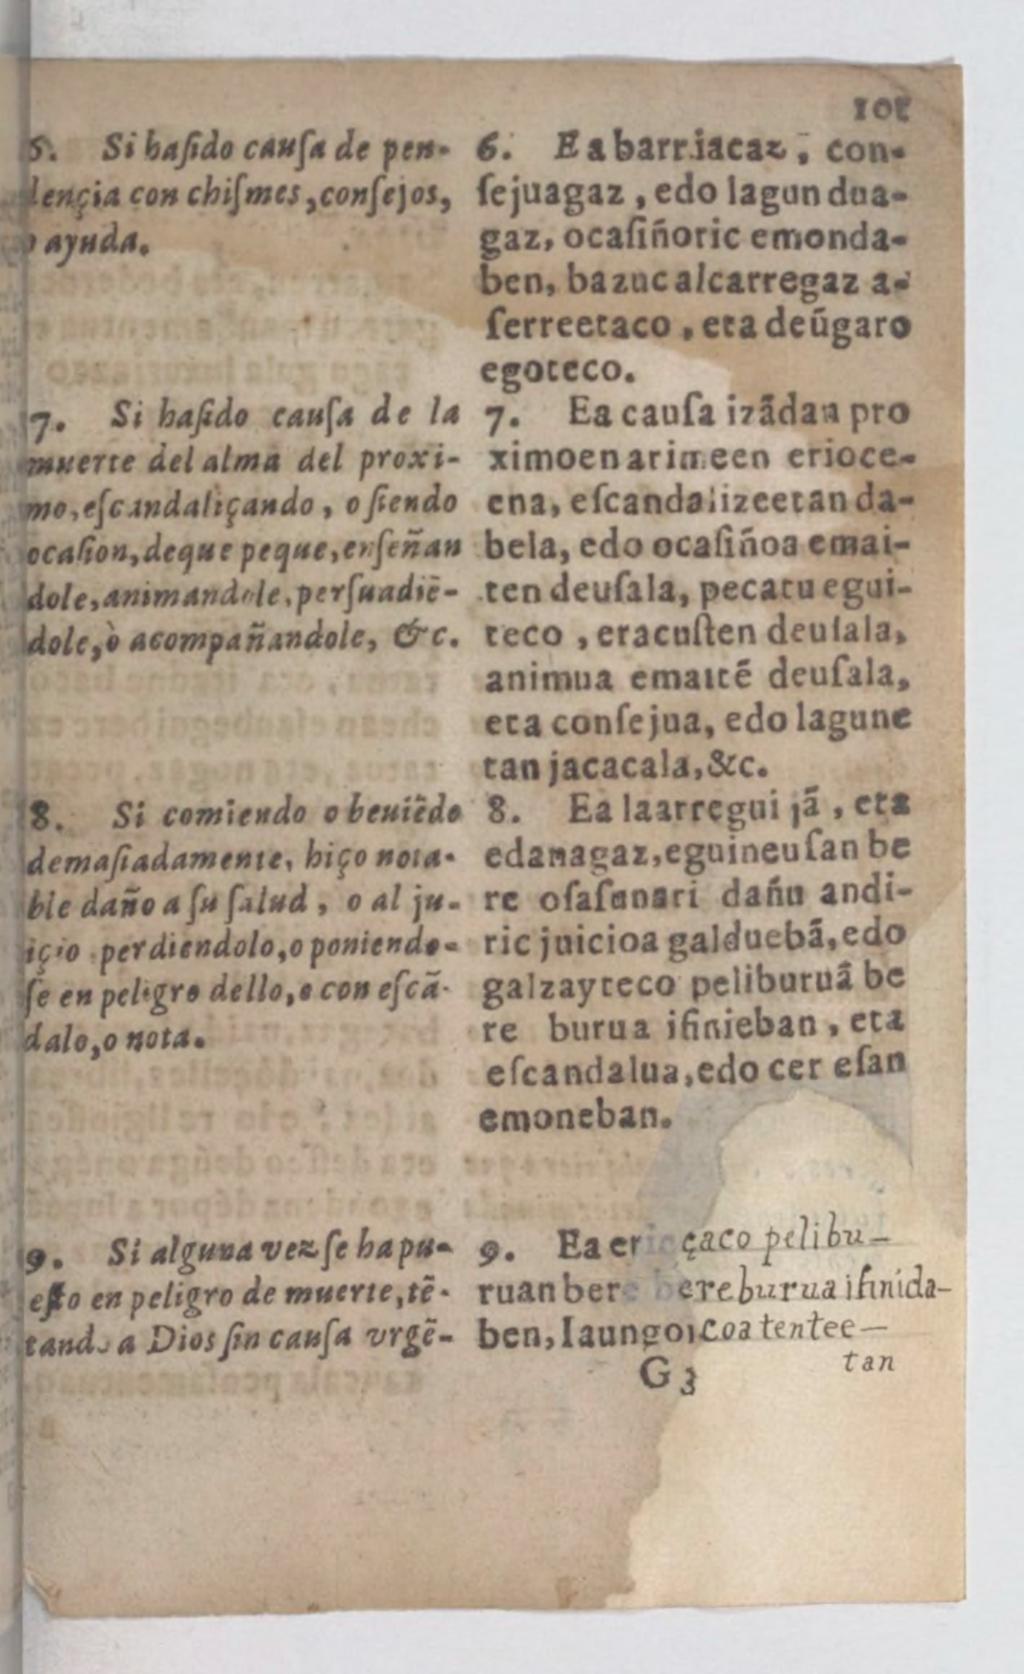 101
6. Si ha ſido cauſa de pen-
dençia con chiſmes, conſejos,
o ayuda.
7. Si ha ſido cauſa de la
muerte del alma del proxi-
mo, eſcandaliçando, o ſiendo
ocaſion, de que peque, enſeñan
dole, animandole, perſuadiē-
dole, ò acompañandole, &c.
8. Si comiendo o beuiēdo
demaſiadamente, hiço nota-
ble daño a ſu ſalud, o al ju-
içio perdiendolo, o poniendo-
ſe en peligro dello, o con eſcā-
dalo, o nota.
9. Si alguna vez ſe ha pu-
eſto en peligro de muerte, tē-
tando a Dios ſin cauſa vrgē-
6. Ea barriacaz, con-
ſejuagaz, edo lagun dua-
gaz, ocaſiñoric emonda-
ben, bazuc alcarregaz a-
ſerreetaco, eta deūgaro
egoteco.
7. Ea cauſa izādan pro
ximoen arimeen erioce-
ena, eſcandalizeetan da-
bela, edo ocaſiñoa emai-
ten deuſala, pecatu egui-
teco, eracuſten deuſala,
animua emaitē deuſala,
eta conſejua, edo lagune
tan jacacala, &c.
8. Ea laarregui jā, eta
edanagaz, eguin euſan be
re oſaſunari dañu andi-
ric juicioa galduebā, edo
galzayteco peliburuā be
re burua iſinieban, eta
eſcandalua, edo cer eſan
emoneban.
9. Ea er çaco pelibu-
ruan bere bere burua iſinida-
ben, Iaungoicoa tentee-
tan
G3